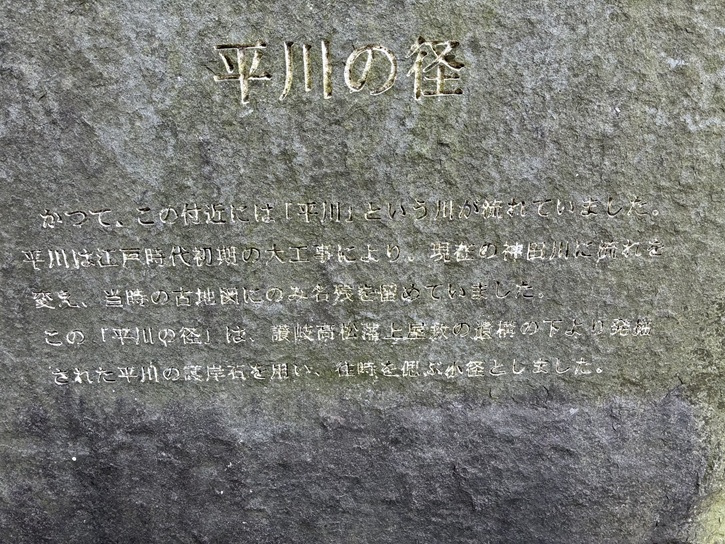 平川の径
かつて、この付近には「平川」という川が流れていました。
平川は江戸時代初期の大工事により、現在の神田川に流れを
変え、当時の古地図にのみ名残を留めていました。
この「平川の径」は、讃岐高松藩上屋敷の遺構の下より発掘
された平川の護岸石を用い、往時を偲ぶ小径としました。